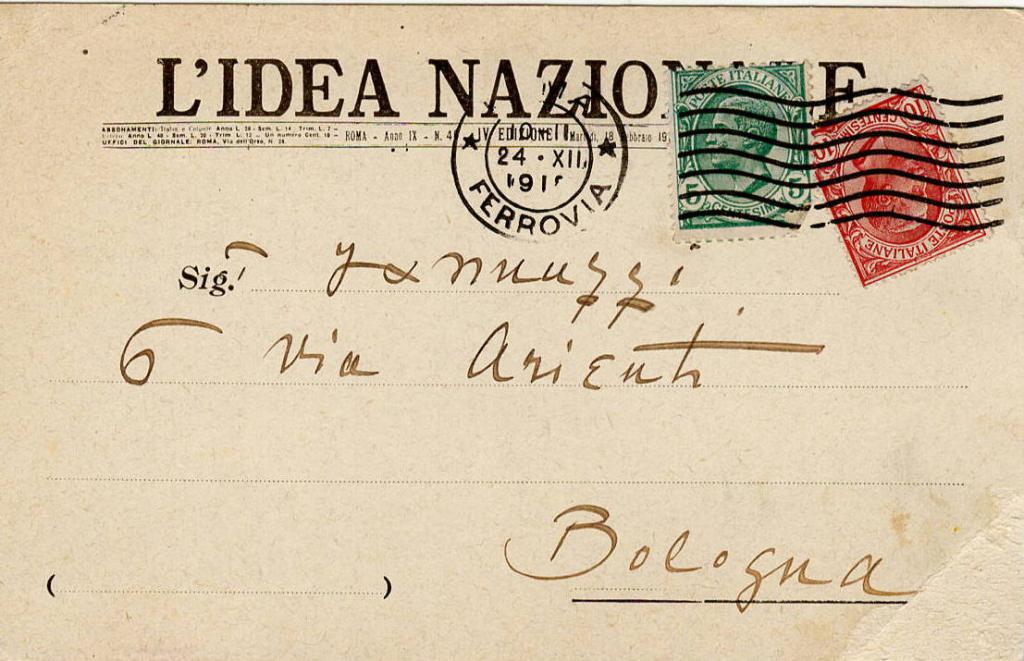 L'IDEA NAZIONALE
ABBONAMENTI: Italia e Colonie Anno L. 26 - Sem. L. 14 Trim. L. 7 -
Anno L. 40 - Sem. L. 20 - Trim. L. 12 - Un numero Cent. 10 -
UFFICI DEL GIORNALE: ROMA, Via dell'Orso, N. 28.
ROMA - Anno IX - N. 4 IV EDIZIONE Martedì, 18 febbraio 19
10-11
24 · XII
191
FERROVIA
POSTE ITALIANE
5 5
CENTESIMI
10 CENTESIMI 10
POSTE ITALIANE
Sig.r Iannuzzi
6 Via Arienti
Bologna
( )